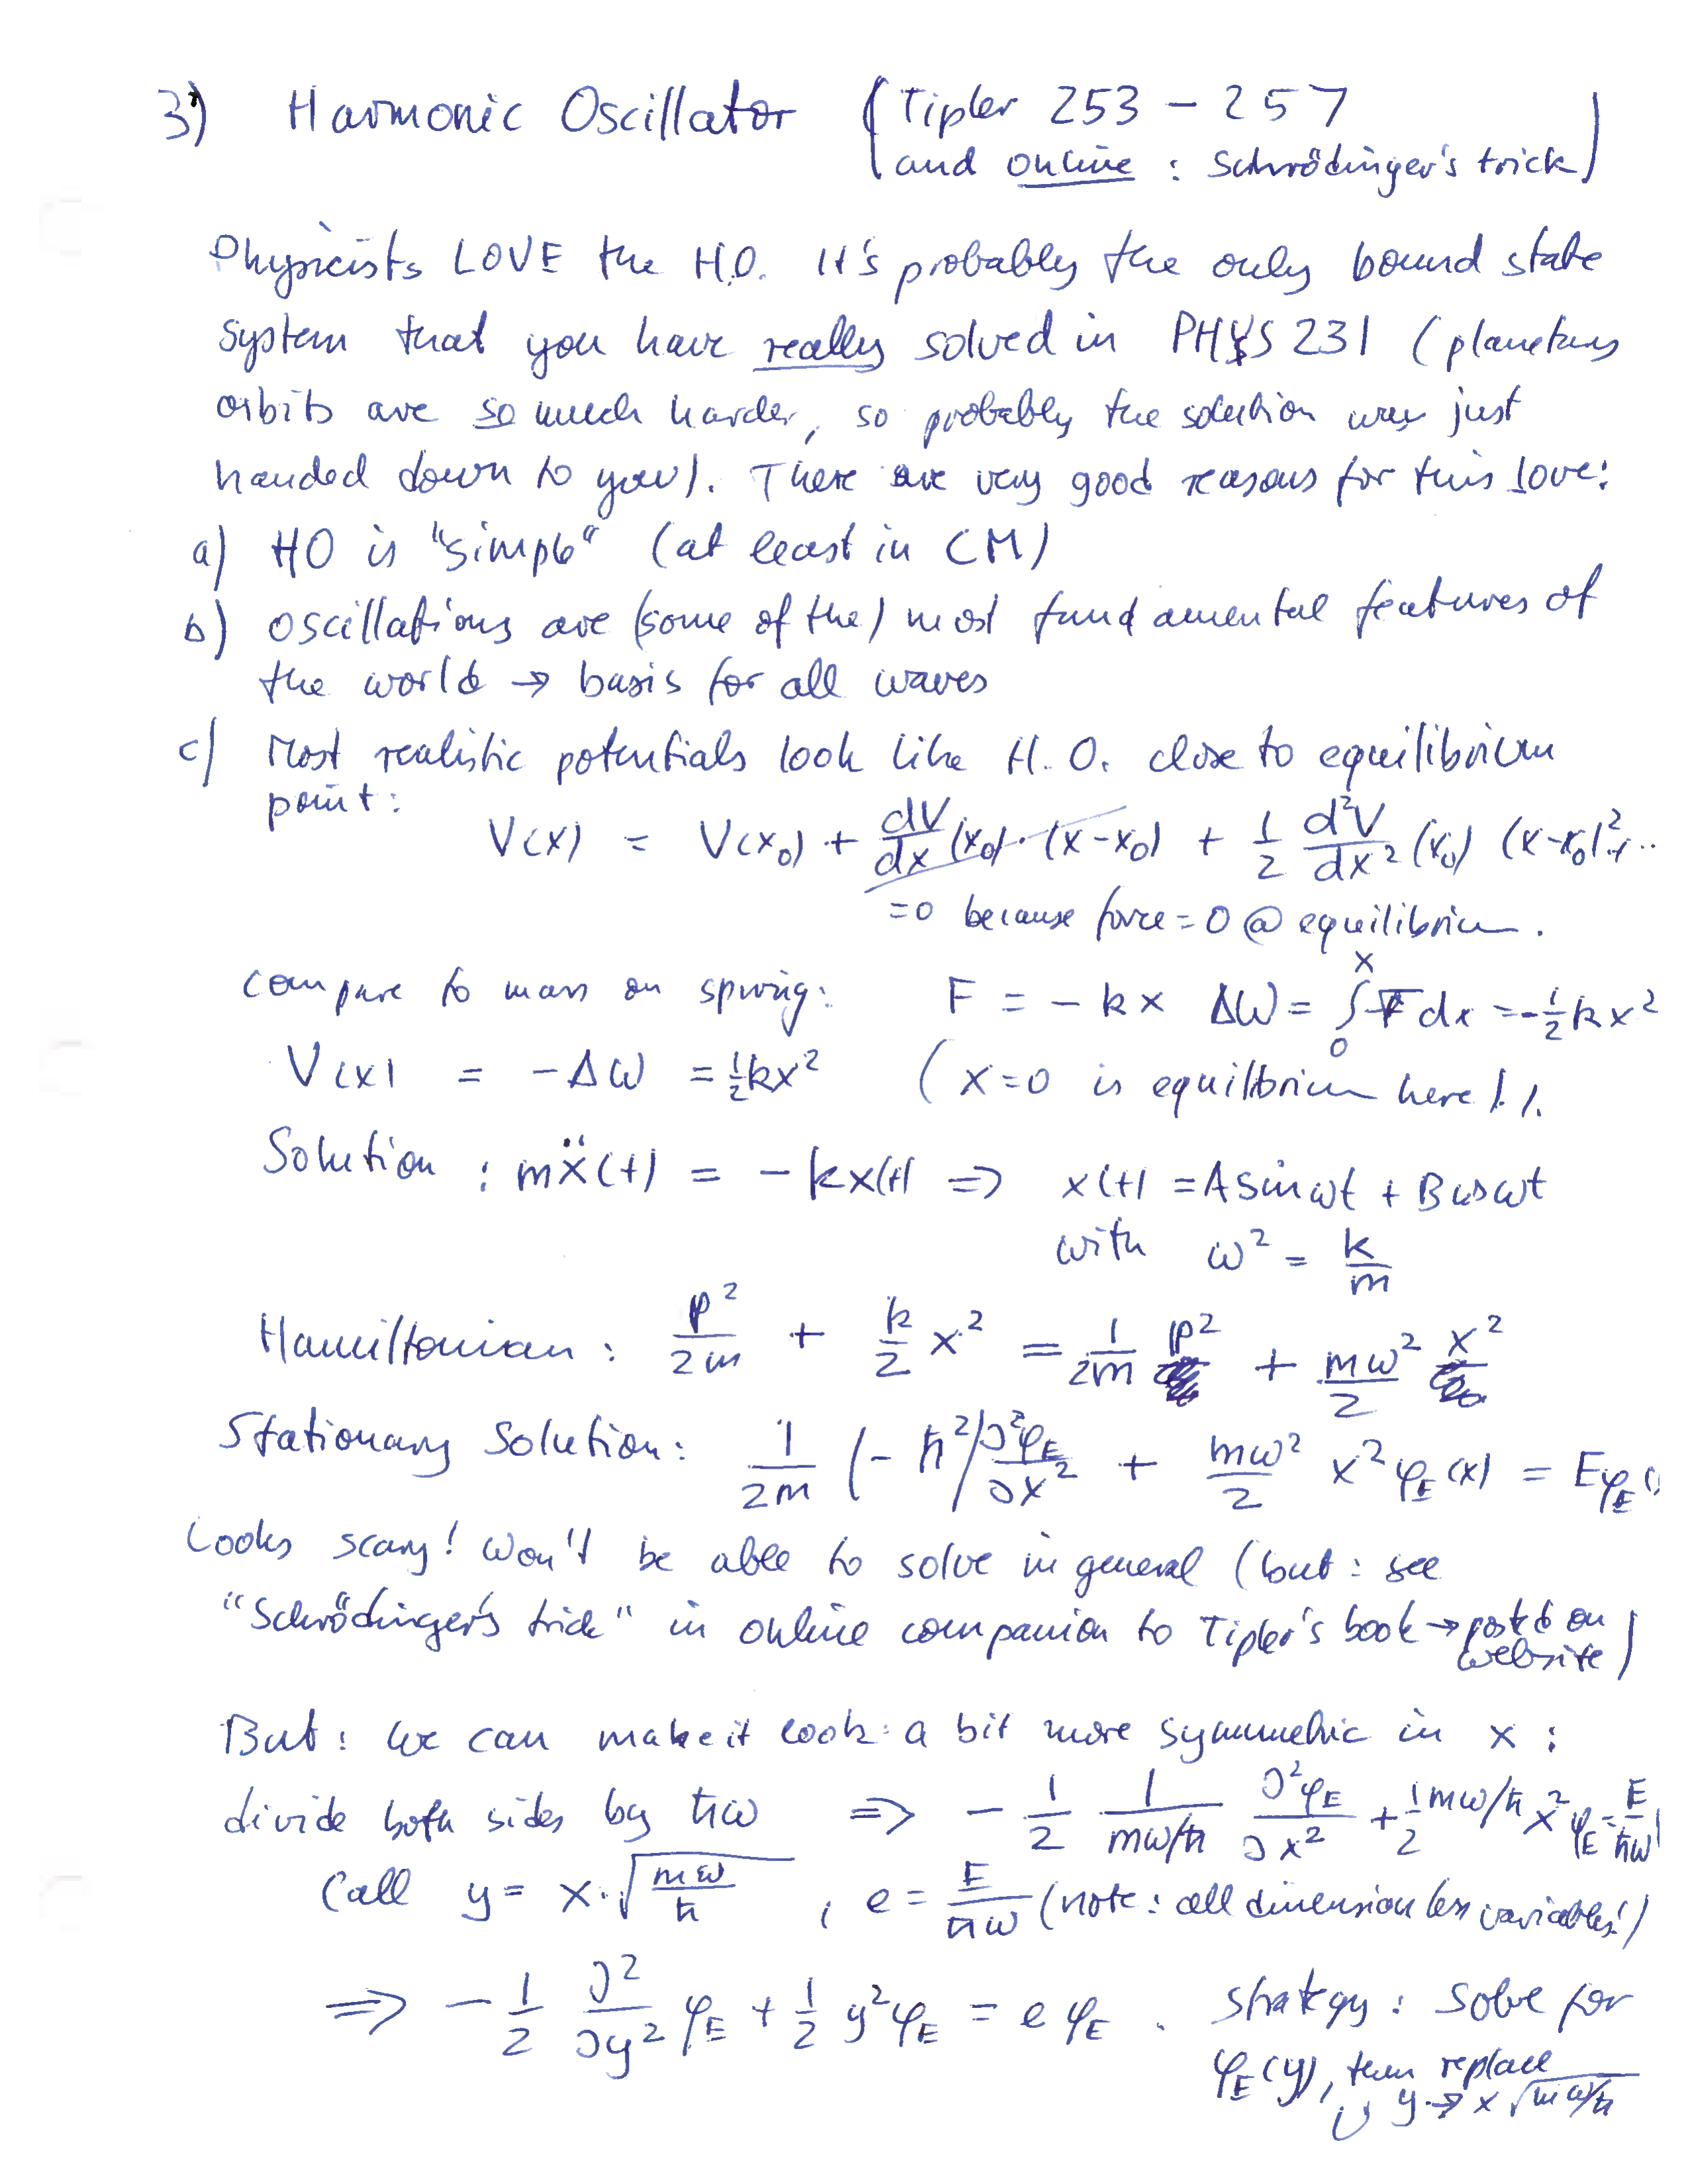 3) Harmonic Oscillator (Tipler 253 – 257
and online : Schrödinger's trick)
Physicists LOVE the H.O. It's probably the only bound state
system that you have really solved in PHYS 231 (planetary
orbits are so much harder, so probably the solution was just
handed down to you). There are very good reasons for this love:
a) HO is "simple" (at least in CM)
b) oscillations are (some of the) most fundamental features of
the world → basis for all waves
c) Most realistic potentials look like H.O. close to equilibrium
point:
V(x) = V(x₀) + dV/dx (x₀) · (x-x₀) + 1/2 d²V/dx² (x₀) (x-x₀)² + ..
=0 because force = 0 @ equilibrium.
compare to mass on spring: F = - kx ΔW = ∫₀ˣ F dx = -½kx²
V(x) = -ΔW = ½kx² (x=0 is equilibrium here!).
Solution : mẍ(t) = - kx(t) ⇒ x(t) = A sin ωt + B cos ωt
with ω² = k/m
Hamiltonian : p²/2m + k/2 x² = 1/2m p² + mω²/2 x²
Stationary Solution: 1/2m (-ħ²) ∂²φ_E/∂x² + mω²/2 x² φ_E(x) = Eφ_E(
Looks scary! Won't be able to solve in general (but : see
"Schrödinger's trick" in online companion to Tipler's book → posted on
website)
But : we can make it look a bit more symmetric in x :
divide both sides by ħω ⇒ - 1/2 1/(mω/ħ) ∂²φ_E/∂x² + 1/2 mω/ħ x² φ_E = E/ħω
Call y = x·√(mω/ħ) , e = E/ħω (note : all dimensionless variables!)
⇒ - 1/2 ∂²/∂y² φ_E + 1/2 y² φ_E = e φ_E . Strategy : Solve for
φ_E(y), then replace
y → x √(mω/ħ)